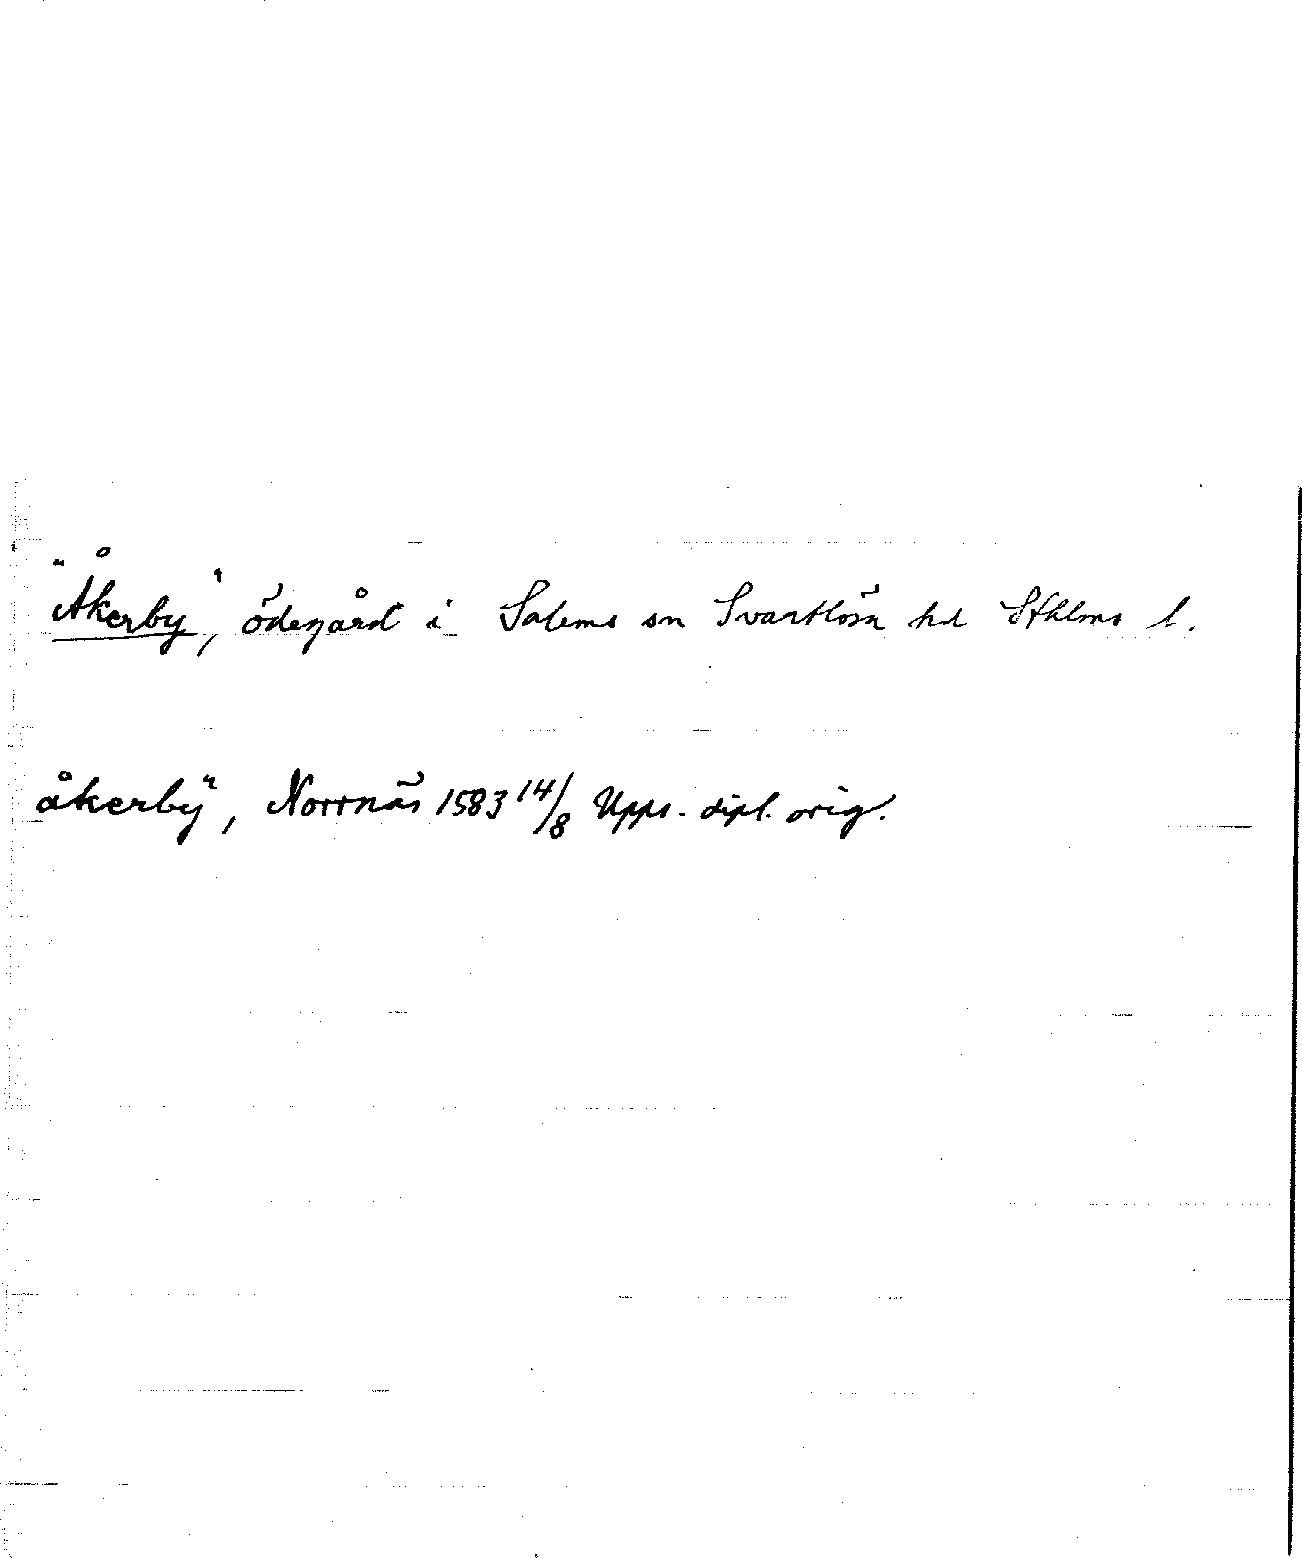 "Åkerby", ödegård i Salems sn Svartlösa hd Sthlms l.
åkerbÿ, Norrnäs 1583 14/8 Upps. dipl. orig.